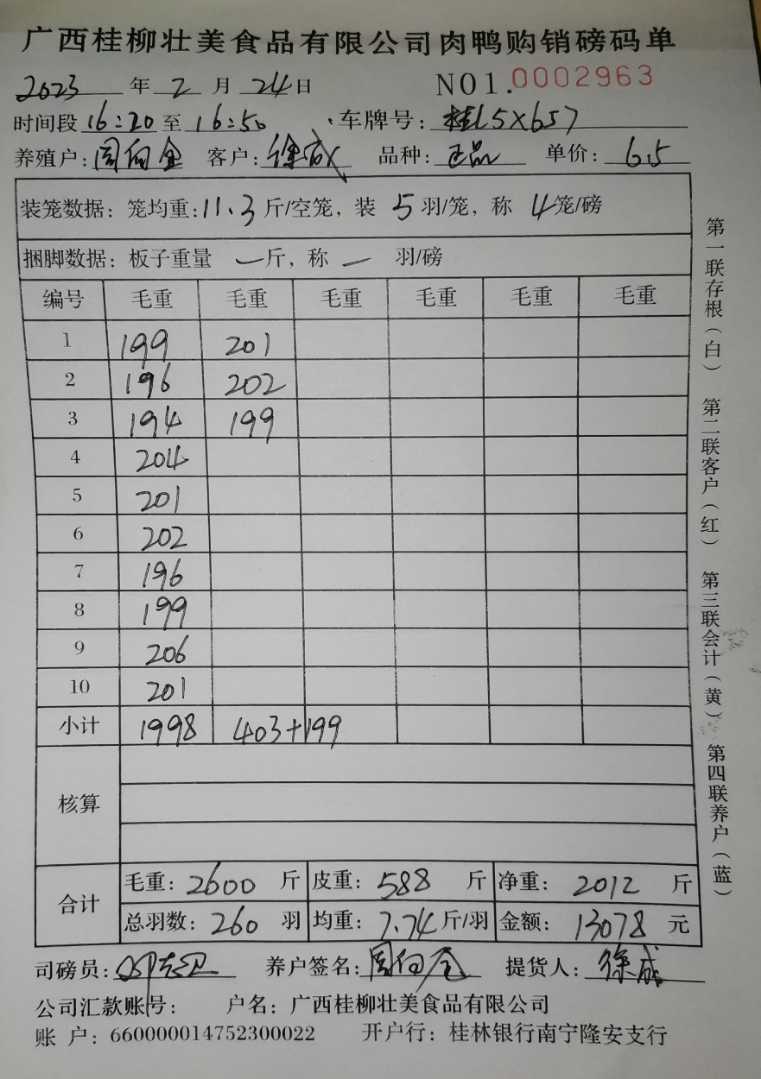 广西桂柳壮美食品有限公司肉鸭购销磅码单
2023 年 2 月 24 日 NO1.0002963
时间段 16:20 至 16:50 、车牌号: 桂L5X657
养殖户: 周向金 客户: 徐成 品种: 正品 单价: 6.5
装笼数据: 笼均重: 11.3 斤/空笼, 装 5 羽/笼, 称 4 笼/磅
捆脚数据: 板子重量 一 斤, 称 一 羽/磅
编号 毛重 毛重 毛重 毛重 毛重 毛重
1 199 201
2 196 202
3 194 199
4 204
5 201
6 202
7 196
8 199
9 206
10 201
小计 1998 403+199
核算
合计
毛重: 2600 斤 皮重: 588 斤 净重: 2012 斤
总羽数: 260 羽 均重: 7.74 斤/羽 金额: 13078 元
司磅员: 养户签名: 周向金 提货人: 徐成
公司汇款账号: 户名: 广西桂柳壮美食品有限公司
账 户: 660000014752300022 开户行: 桂林银行南宁隆安支行
第一联存根(白) 第二联客户(红) 第三联会计(黄) 第四联养户(蓝)